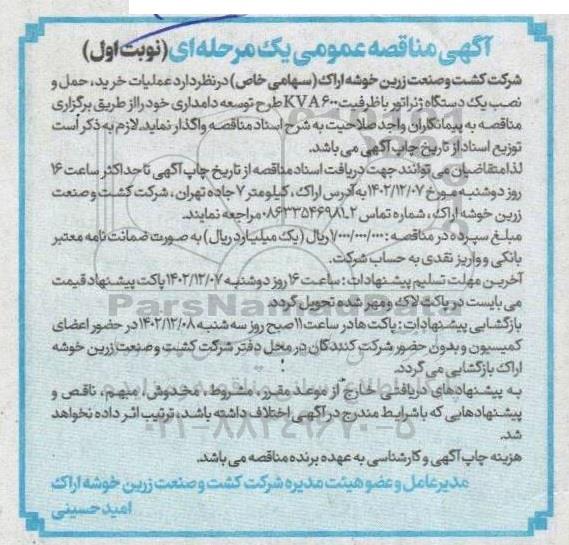 آگهی مناقصه عمومی یک مرحله‌ای (نوبت اول)
شرکت کشت و صنعت زرین خوشه اراک (سهامی خاص) در نظر دارد عملیات خرید، حمل و
نصب یک دستگاه ژنراتور با ظرفیت KVA۶۰۰ طرح توسعه دامداری خود را از طریق برگزاری
مناقصه به پیمانکاران واجد صلاحیت به شرح اسناد مناقصه واگذار نماید. لازم به ذکر است
توزیع اسناد از تاریخ چاپ آگهی می باشد.
لذا متقاضیان می توانند جهت دریافت اسناد مناقصه از تاریخ چاپ آگهی تا حداکثر ساعت ۱۶
روز دوشنبه مورخ ۱۴۰۲/۱۲/۰۷ به آدرس اراک، کیلومتر ۷ جاده تهران، شرکت کشت و صنعت
زرین خوشه اراک، شماره تماس ۲-۰۸۶۳۳۵۴۶۹۸۱ مراجعه نمایند.
مبلغ سپرده در مناقصه: ۱/۰۰۰/۰۰۰/۰۰۰ ریال (یک میلیارد ریال) به صورت ضمانت نامه معتبر
بانکی و واریز نقدی به حساب شرکت.
آخرین مهلت تسلیم پیشنهادات: ساعت ۱۶ روز دوشنبه ۱۴۰۲/۱۲/۰۷ پاکت پیشنهاد قیمت
می بایست در پاکت لاک و مهر شده تحویل گردد.
بازگشایی پیشنهادات: پاکت ها در ساعت ۱۱ صبح روز سه شنبه ۱۴۰۲/۱۲/۰۸ در حضور اعضای
کمیسیون و بدون حضور شرکت کنندگان در محل دفتر شرکت کشت و صنعت زرین خوشه
اراک بازگشایی می گردد.
به پیشنهادهای دریافتی خارج از موعد مقرر، مشروط، مخدوش، مبهم، ناقص و
پیشنهادهایی که با شرایط مندرج در آگهی اختلاف داشته باشد، ترتیب اثر داده نخواهد
شد.
هزینه چاپ آگهی و کارشناسی به عهده برنده مناقصه می باشد.
مدیرعامل و عضو هیئت مدیره شرکت کشت و صنعت زرین خوشه اراک
امید حسینی
ParsNamadData
۰۲۱-۸۸۳۴۹۶۷۰-۵